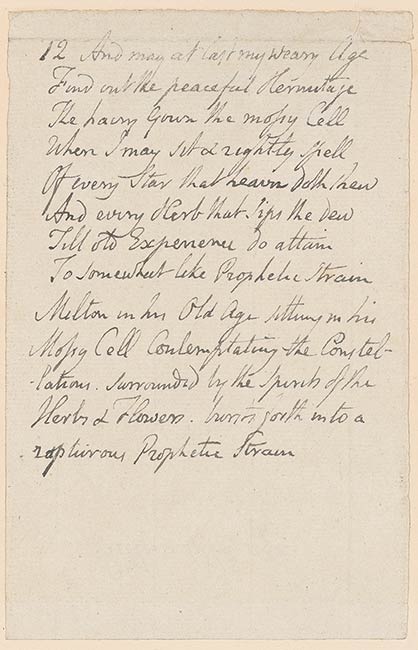 12 And may at last my weary Age
Find out the peaceful Hermitage
The hairy Gown the mossy Cell
Where I may sit & rightly spell
Of every Star that heavn doth shew
And every Herb that sips the dew
Till old Experience do attain
To somewhat like Prophetic Strain
Milton in his Old Age sitting in his
Mossy Cell Contemplating the Constel-
-lations. surrounded by the Spirits of the
Herbs & Flowers. bursts forth into a
rapturous Prophetic Strain